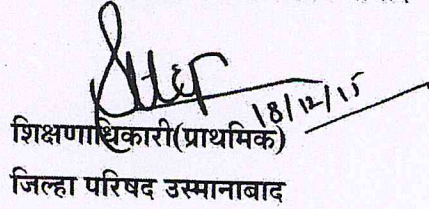 18/12/15
शिक्षणाधिकारी(प्राथमिक)
जिल्हा परिषद उस्मानाबाद